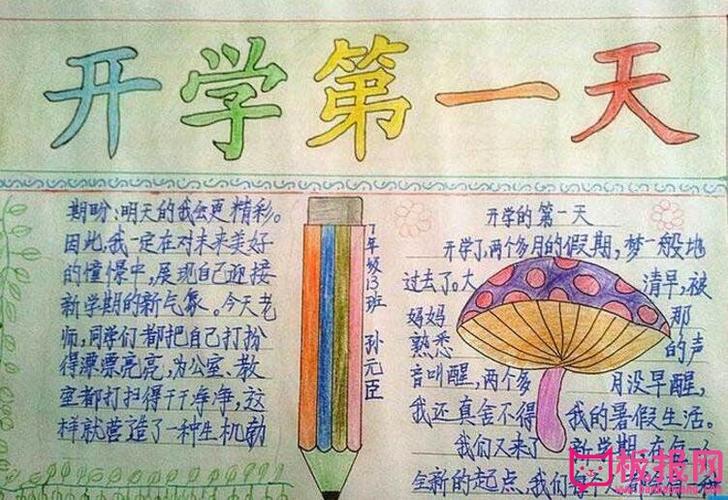 开学第一天
期盼:明天的我会更精彩。
因此,我一定在对未来美好
的憧憬中,展现自己迎接
新学期的新气象。今天老
师,同学们都把自己打扮
得漂漂亮亮,为公室、教
室都打扫得干干净净,这
样就营造了一种生机勃
7年级13班 孙元臣
开学的第一天
开学了,两个多月的假期,梦一般地
过去了。大 清早,被
妈妈 那
熟悉 的声
音叫醒,两个多 月没早醒,
我还真舍不得 我的暑假生活。
我们又来了 新学期,在
全新的起点、我们
板报网